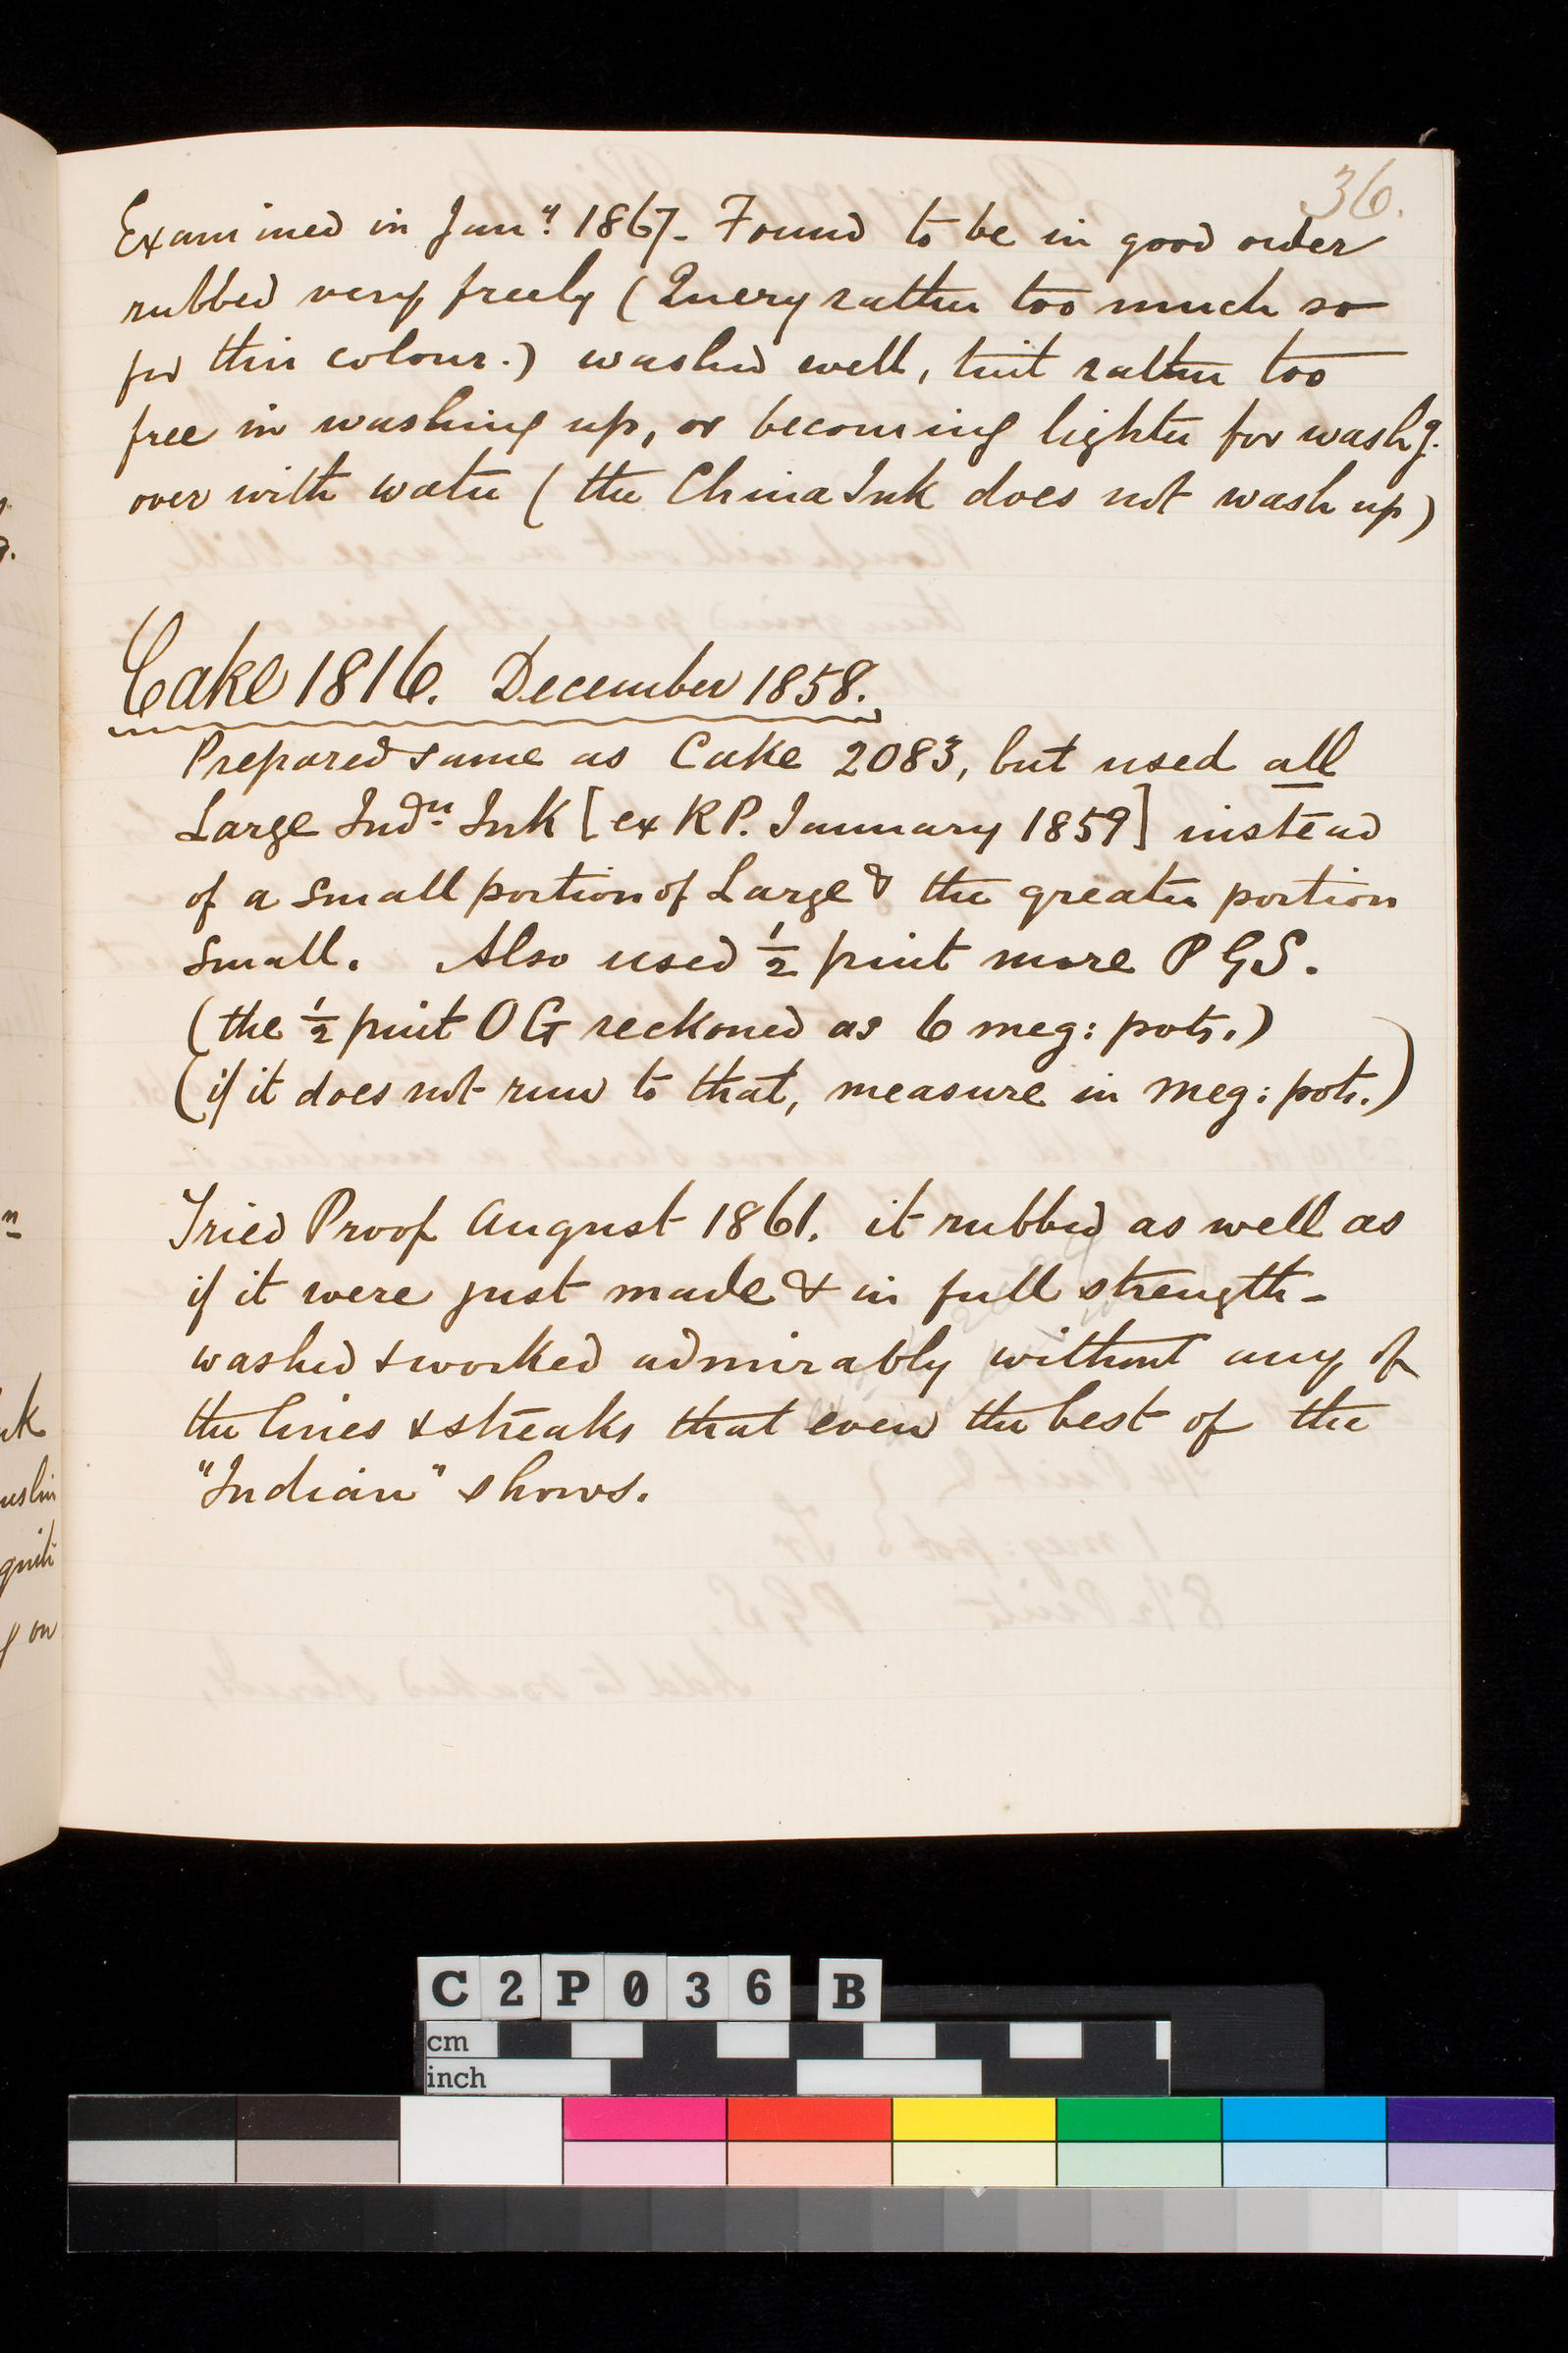 36.
Examined in Jany. 1867. Found to be in good order
rubbed very freely (Query rather too much so
for this colour.) washed well, tint rather too
free in washing up, or becoming lighter for washg.
over with water (the China Ink does not wash up)
Cake 1816. December 1858.
Prepared same as Cake 2083, but used all
Large Indn. Ink [ex RP. January 1859] instead
of a small portion of Large & the greater portion
small. Also used ½ pint more P G S.
(the ½ pint O G reckoned as 6 meg: pots.)
(if it does not run to that, measure in meg: pots.)
Tried Proof August 1861. it rubbed as well as
if it were just made & in full strength -
washed & worked admirably without any of
the lines & streaks that even the best of the
"Indian" shows.
C2P036 B
cm
inch